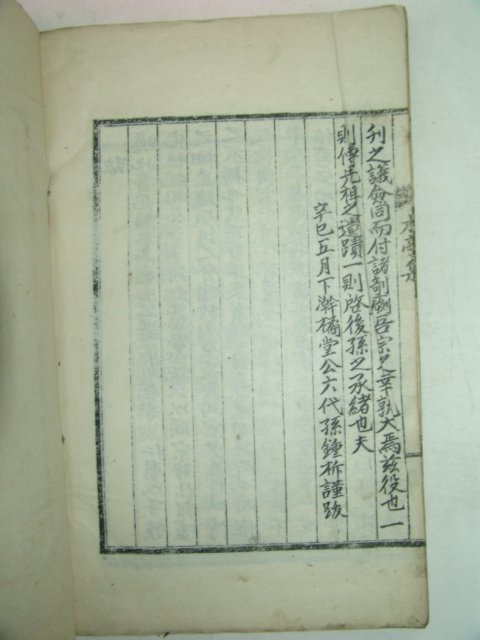 刊之議僉同而付諸剞劂吾宗之幸孰大焉玆役也一
則傳先祖之遺蹟一則啓後孫之承緖也夫
辛巳五月下澣橘堂公六代孫鍾柝謹跋